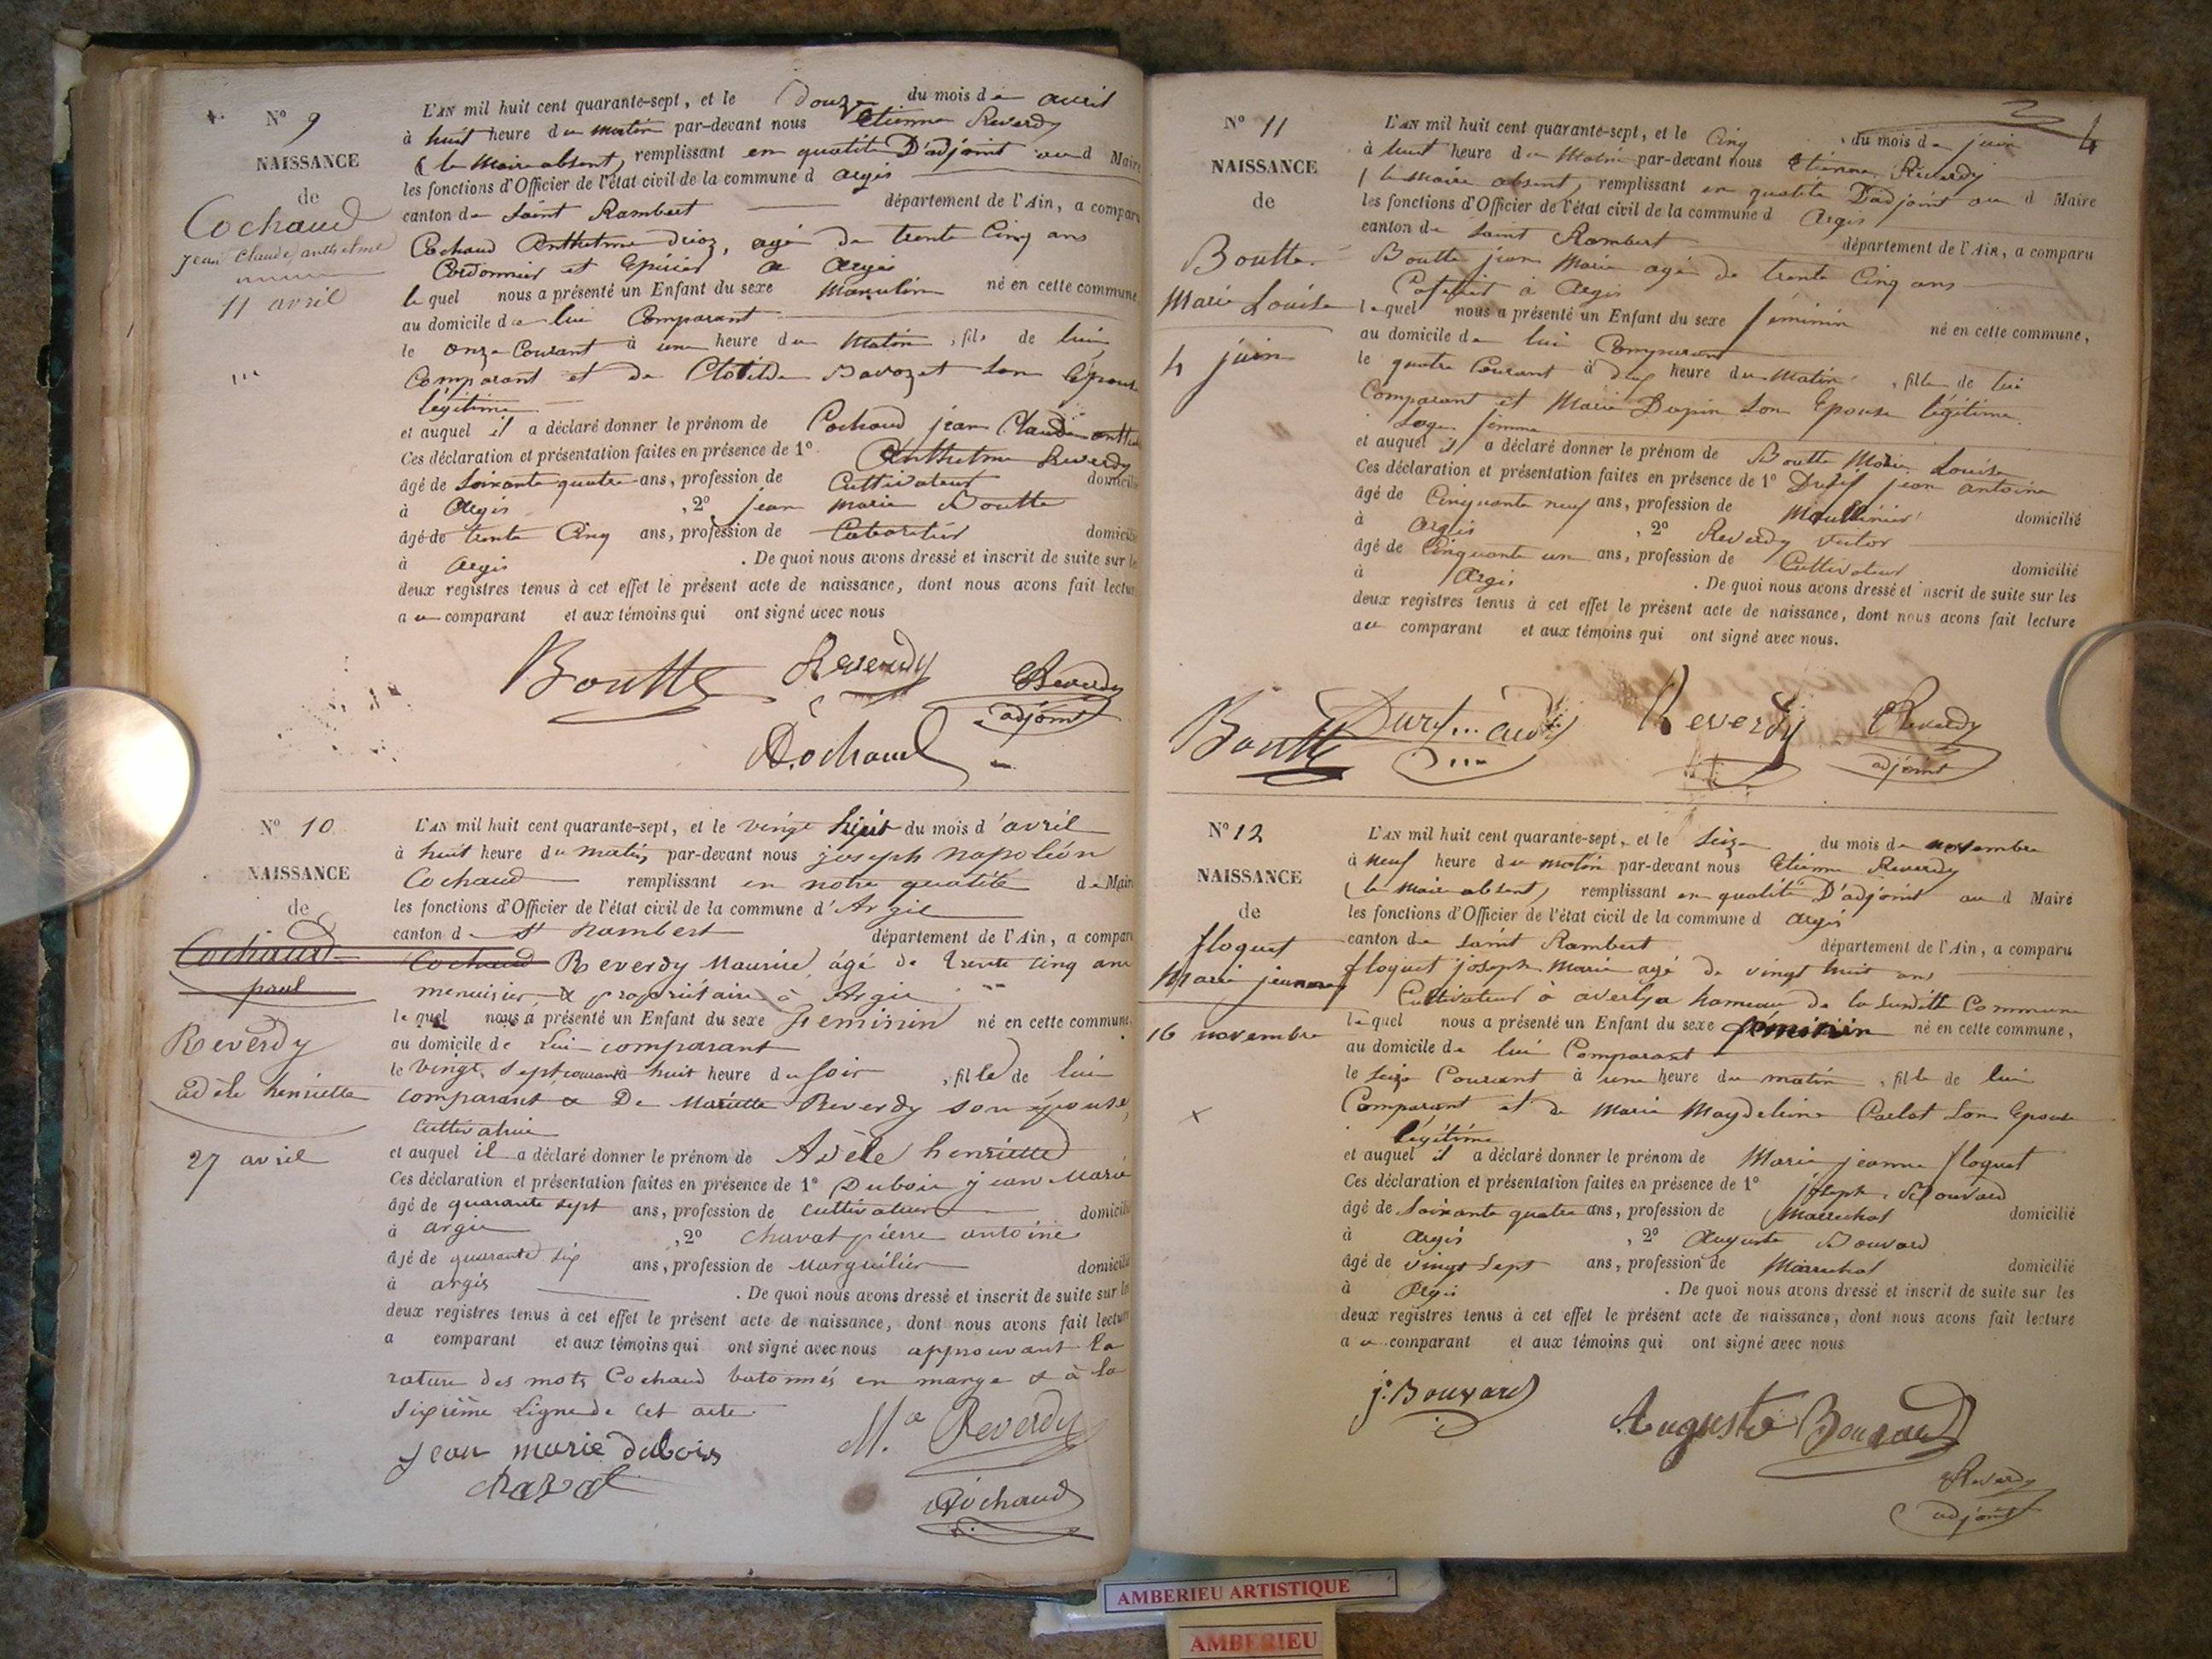 N° 9
NAISSANCE
de
Cochaud
jean Claude anthelme
11 avril
L'AN mil huit cent quarante-sept, et le Douze du mois de avril
à huit heure du matin par-devant nous Etienne Reverdy
(le Maire absent) remplissant en qualité D'adjoint au d Maire
les fonctions d'Officier de l'état civil de la commune d argis
canton de Saint Rambert département de l'Ain, a comparu
Cochaud Anthelme drioz, agé de trente Cinq ans
Cordonnier et Epicier a argis
lequel nous a présenté un Enfant du sexe Masculin né en cette commune
au domicile de lui Comparant
le onze Courant à une heure du Matin, fils de lui
Comparant et de Clotilde Savozet son Epouse
légitime
et auquel il a déclaré donner le prénom de Cochaud jean Claude anthelme
Ces déclaration et présentation faites en présence de 1° Anthelme Reverdy
âgé de Soixante quatre ans, profession de Cultivateur domicilié
à Argis, 2° jean marie Boutte
âgé de trente Cinq ans, profession de Cabaretier domicilié
à Argis. De quoi nous avons dressé et inscrit de suite sur les
deux registres tenus à cet effet le présent acte de naissance, dont nous avons fait lecture
au comparant et aux témoins qui ont signé avec nous
Boutte Reverdy Reverdy
adjoint
A. Cochaud
N° 10
NAISSANCE
de
Cochaud
paul
Reverdy
adèle henriette
27 avril
L'AN mil huit cent quarante-sept, et le vingt huit du mois d'avril
à huit heure du matin par-devant nous joseph napoléon
Cochaud remplissant en notre qualité de Maire
les fonctions d'Officier de l'état civil de la commune d'Argis
canton d St Rambert département de l'Ain, a comparu
Cochaud Reverdy Maurice, âgé de trente cinq ans
menuisier & propriétaire à Argis
lequel nous a présenté un Enfant du sexe Feminin né en cette commune
au domicile de Lui comparant
le vingt sept courant à huit heure du soir, fille de lui
comparant & De Mariette Reverdy son épouse,
cultivatrice
et auquel il a déclaré donner le prénom de Adèle henriette
Ces déclaration et présentation faites en présence de 1° Dubois jean Marie
âgé de quarante sept ans, profession de cultivateur domicilié
à argis, 2° Chavat pierre antoine
âgé de quarante six ans, profession de Marguilier domicilié
à argis. De quoi nous avons dressé et inscrit de suite sur les
deux registres tenus à cet effet le présent acte de naissance, dont nous avons fait lecture
a comparant et aux témoins qui ont signé avec nous approuvant la
rature des mots Cochaud batonnés en marge & à la
sixième Ligne de cet acte
Jean marie dubois Mce Reverdy
chavat Cochaud
4
N° 11
NAISSANCE
de
Boutte
Marie Louise
4 juin
L'AN mil huit cent quarante-sept, et le Cinq du mois de juin
à huit heure du Matin par-devant nous Etienne Reverdy
(le Maire absent) remplissant en qualité D'adjoint au d Maire
les fonctions d'Officier de l'état civil de la commune d Argis
canton de Saint Rambert département de l'Ain, a comparu
Boutte jean Marie agé de trente Cinq ans
à Argis
lequel nous a présenté un Enfant du sexe féminin né en cette commune,
au domicile de lui Comparant
le quatre Courant à deux heure du Matin, fille de lui
Comparant et Marie Dupin Son Epouse légitime
Sage femme
et auquel il a déclaré donner le prénom de Boutte Marie Louise
Ces déclaration et présentation faites en présence de 1° jean antoine
âgé de Cinquante neuf ans, profession de Moulinier domicilié
à Argis, 2° Reverdy Victor
âgé de Cinquante un ans, profession de Cultivateur domicilié
à Argis. De quoi nous avons dressé et inscrit de suite sur les
deux registres tenus à cet effet le présent acte de naissance, dont nous avons fait lecture
au comparant et aux témoins qui ont signé avec nous.
Boutte Reverdy Reverdy
adjoint
N° 12
NAISSANCE
de
floquet
Marie jeanne
16 novembre
L'AN mil huit cent quarante-sept, et le Seize du mois de novembre
à neuf heure du matin par-devant nous Etienne Reverdy
(le maire absent) remplissant en qualité D'adjoint au d Maire
les fonctions d'Officier de l'état civil de la commune d argis
canton de Saint Rambert département de l'Ain, a comparu
floquet joseph Marie agé de vingt huit ans
Cultivateur à averlya hameau de la Susditte Commune
lequel nous a présenté un Enfant du sexe féminin né en cette commune,
au domicile de lui Comparant
le Seize Courant à une heure du matin, fille de lui
Comparant et de Marie Magdeleine Carlot Son Epouse
légitime
et auquel il a déclaré donner le prénom de Marie jeanne floquet
Ces déclaration et présentation faites en présence de 1° joseph Bouvard
âgé de Soixante quatre ans, profession de Marechal domicilié
à Argis, 2° Auguste Bouvard
âgé de vingt sept ans, profession de Marechal domicilié
à Argis. De quoi nous avons dressé et inscrit de suite sur les
deux registres tenus à cet effet le présent acte de naissance, dont nous avons fait lecture
au comparant et aux témoins qui ont signé avec nous
j. Bouvard Auguste Bouvard
Reverdy
adjoint
AMBERIEU ARTISTIQUE
AMBERIEU